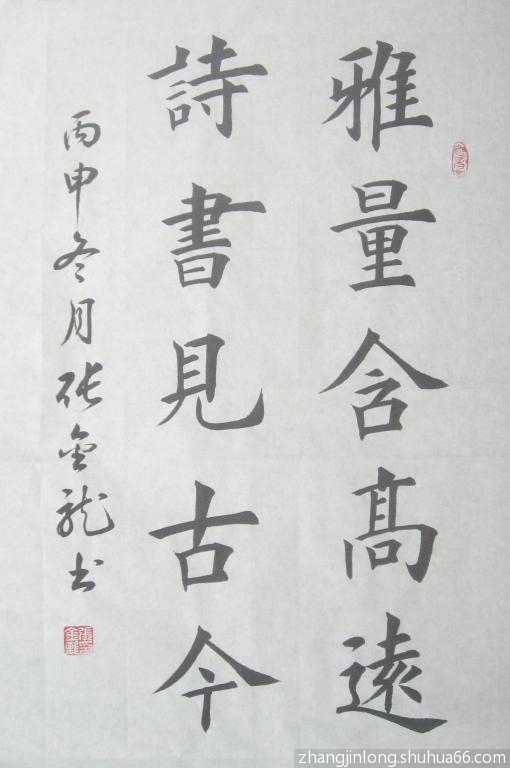 雅量含高遠
詩書見古今
丙申冬月張金龙书
zhangjinlong.shuhua66.com